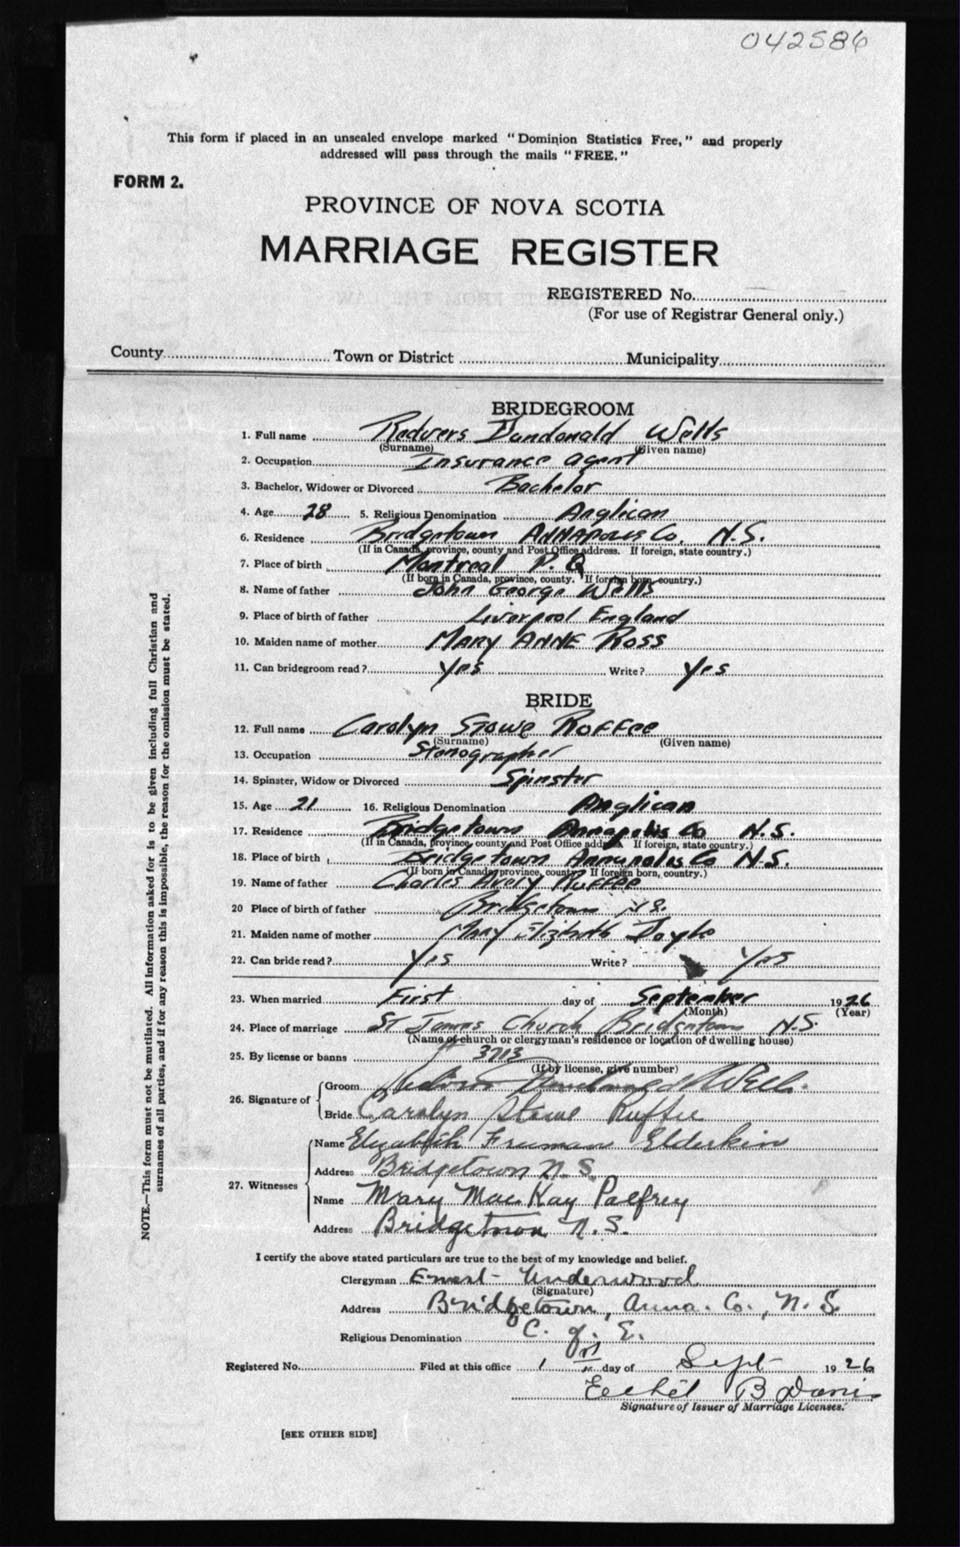 042586
This form if placed in an unsealed envelope marked "Dominion Statistics Free," and properly
addressed will pass through the mails "FREE."
FORM 2.
PROVINCE OF NOVA SCOTIA
MARRIAGE REGISTER
REGISTERED No.
(For use of Registrar General only.)
County Town or District Municipality
BRIDEGROOM
1. Full name Redvers Dundonald Wells
(Surname) (Given name)
2. Occupation Insurance agent
3. Bachelor, Widower or Divorced Bachelor
4. Age 28 5. Religious Denomination Anglican
6. Residence Bridgetown Annapolis Co. N.S.
(If in Canada, province, county and Post Office address. If foreign, state country.)
7. Place of birth Montreal P.Q
(If born in Canada, province, county. If foreign born, country.)
8. Name of father John George Wells
9. Place of birth of father Liverpool England
10. Maiden name of mother Mary Anne Ross
11. Can bridegroom read? Yes Write? Yes
BRIDE
12. Full name Carolyn Stowe Roffee
(Surname) (Given name)
13. Occupation Stenographer
14. Spinster, Widow or Divorced Spinster
15. Age 21 16. Religious Denomination Anglican
17. Residence Bridgetown Annapolis Co N.S.
(If in Canada, province, county and Post Office address. If foreign, state country.)
18. Place of birth Bridgetown Annapolis Co N.S.
(If born in Canada, province, county. If foreign born, country.)
19. Name of father Charles Ruffee
20 Place of birth of father Bridgetown N.S.
21. Maiden name of mother Mary Elizabeth
22. Can bride read? Yes Write? Yes
23. When married First day of September 1926
(Month) (Year)
24. Place of marriage St James Church Bridgetown N.S.
(Name of church or clergyman's residence or location of dwelling house)
25. By license or banns # 3713
(If by license, give number)
26. Signature of
Groom Wells
Bride Carolyn Stowe Ruffee
27. Witnesses
Name Elizabeth Freeman Elderkin
Address Bridgetown N.S.
Name Mary MacKay Palfrey
Address Bridgetown N.S.
I certify the above stated particulars are true to the best of my knowledge and belief.
Clergyman Ernest Underwood
(Signature)
Address Bridgetown, Anna. Co., N.S.
Religious Denomination C. of. E.
Registered No. Filed at this office 1st day of Sept 1926
B Davis
Signature of Issuer of Marriage Licenses.
[SEE OTHER SIDE]
NOTE.—This form must not be mutilated. All information asked for is to be given including full Christian and
surnames of all parties, and if for any reason this is impossible, the reason for the omission must be stated.